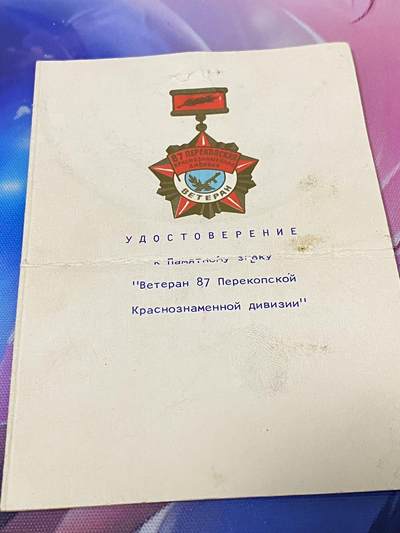 87 ПЕРЕКОПСКАЯ
КРАСНОЗНАМЕННАЯ
ДИВИЗИЯ
ВЕТЕРАН
УДОСТОВЕРЕНИЕ
к Памятному знаку
"Ветеран 87 Перекопской
Краснознаменной дивизии"